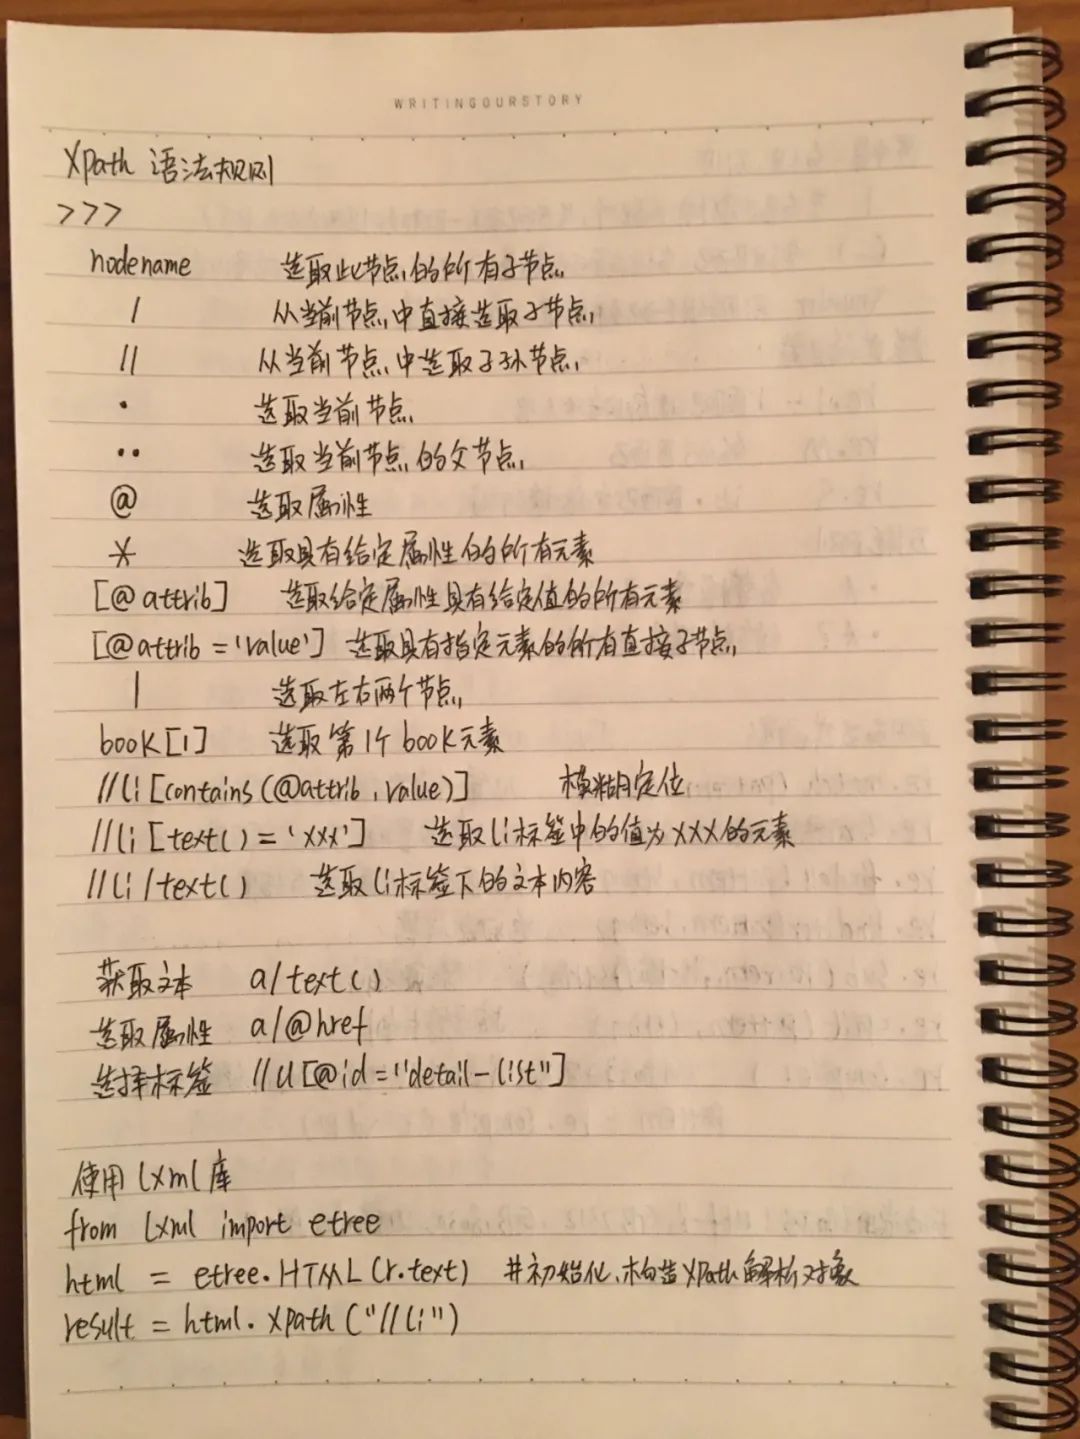 WRITINGOURSTORY
Xpath 语法规则
>>>
nodename 选取此节点的所有子节点
/ 从当前节点中直接选取子节点
// 从当前节点中选取子孙节点
· 选取当前节点
·· 选取当前节点的父节点
@ 选取属性
* 选取具有给定属性的所有元素
[@attrib] 选取给定属性具有给定值的所有元素
[@attrib = 'value'] 选取具有指定元素的所有直接子节点
| 选取左右两个节点
book[1] 选取第1个book元素
//li [contains (@attrib , value)] 模糊定位
//li [text() = 'xxx'] 选取li标签中的值为xxx的元素
//li /text() 选取li标签下的文本内容
获取文本 a/text()
选取属性 a/@href
选择标签 //ul [@id = "detail-list"]
使用lxml库
from lxml import etree
html = etree.HTML (r.text) #初始化,构造XPath解析对象
result = html.xpath ("//li")